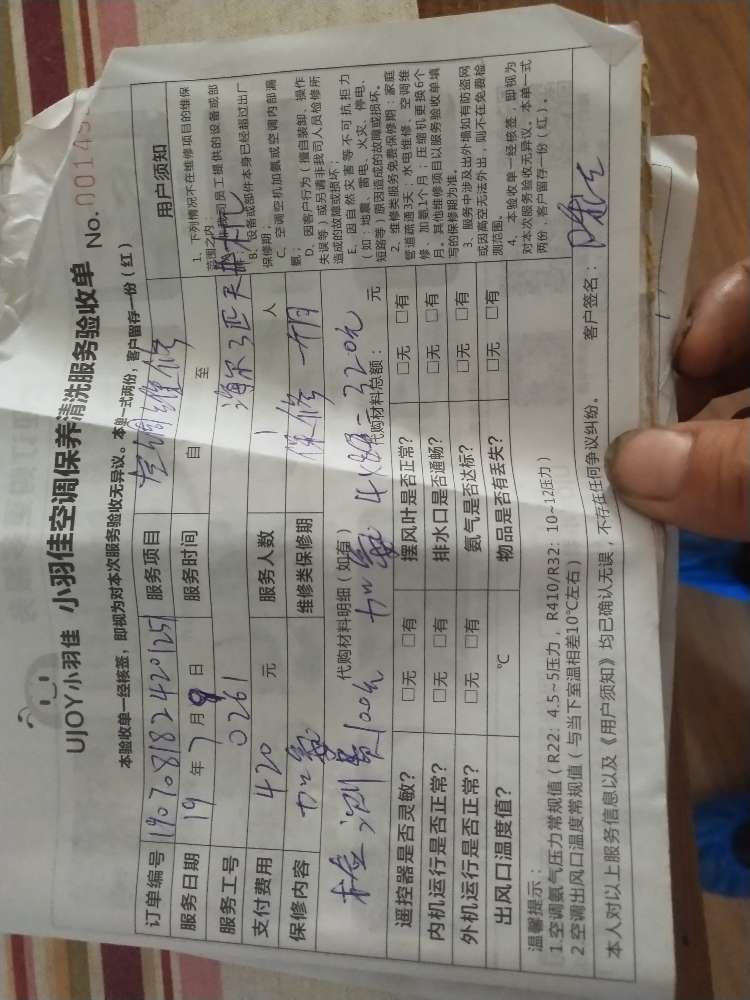 UJOY小羽佳 小羽佳空调保养清洗服务验收单 No.
本验收单一经核签，即视为对本次服务验收无异议。本单一式两份，客户留存一份（红）
订单编号 190708182420125 服务项目 空调维修
服务日期 19 年 7 月 9 日 服务时间 自 至
服务工号 0261 海尔3匹天
支付费用 420 元 服务人数 1 人
保修内容 加氟 维修类保修期 保修一个月
代购材料明细（如有） 代购材料总额： 元
检测费100元 加氟 4×80=320元
遥控器是否灵敏？ □无 □有 摆风叶是否正常？ □无 □有
内机运行是否正常？ □无 □有 排水口是否通畅？ □无 □有
外机运行是否正常？ □无 □有 氨气是否达标？ □无 □有
出风口温度值？ ℃ 物品是否有丢失？ □无 □有
用户须知
1、下列情况不在维修项目的维保
范围之内：
员工提供的设备或部
B、设备或部件本身已经超过出厂
保修期；
C、空调空机加氨或空调内部漏
氨；
D、因客户行为（擅自装卸、操作
失误等）或另请非我司人员检修所
造成的故障或损坏；
E、因自然灾害等不可抗拒力
（如：地震、雷电、火灾、停电、
短路等）原因造成的故障或损坏。
2、维修类服务免费保修期：家庭
管道疏通3天；水电维修、空调维
修、加氨1个月；压缩机更换6个
月。其他维修项目以服务验收单填
写的保修期为准。
3、服务中涉及出外墙如有防盗网
或因高空无法外出，则不在免费检
测范围。
4、本验收单一经核签，即视为
对本次服务验收无异议。本单一式
两份，客户留存一份（红）。
温馨提示：
1.空调氨气压力常规值（R22：4.5~5压力，R410/R32：10~12压力）
2.空调出风口温度常规值（与当下室温相差10℃左右）
本人对以上服务信息以及《用户须知》均已确认无误，不存在任何争议纠纷。 客户签名：